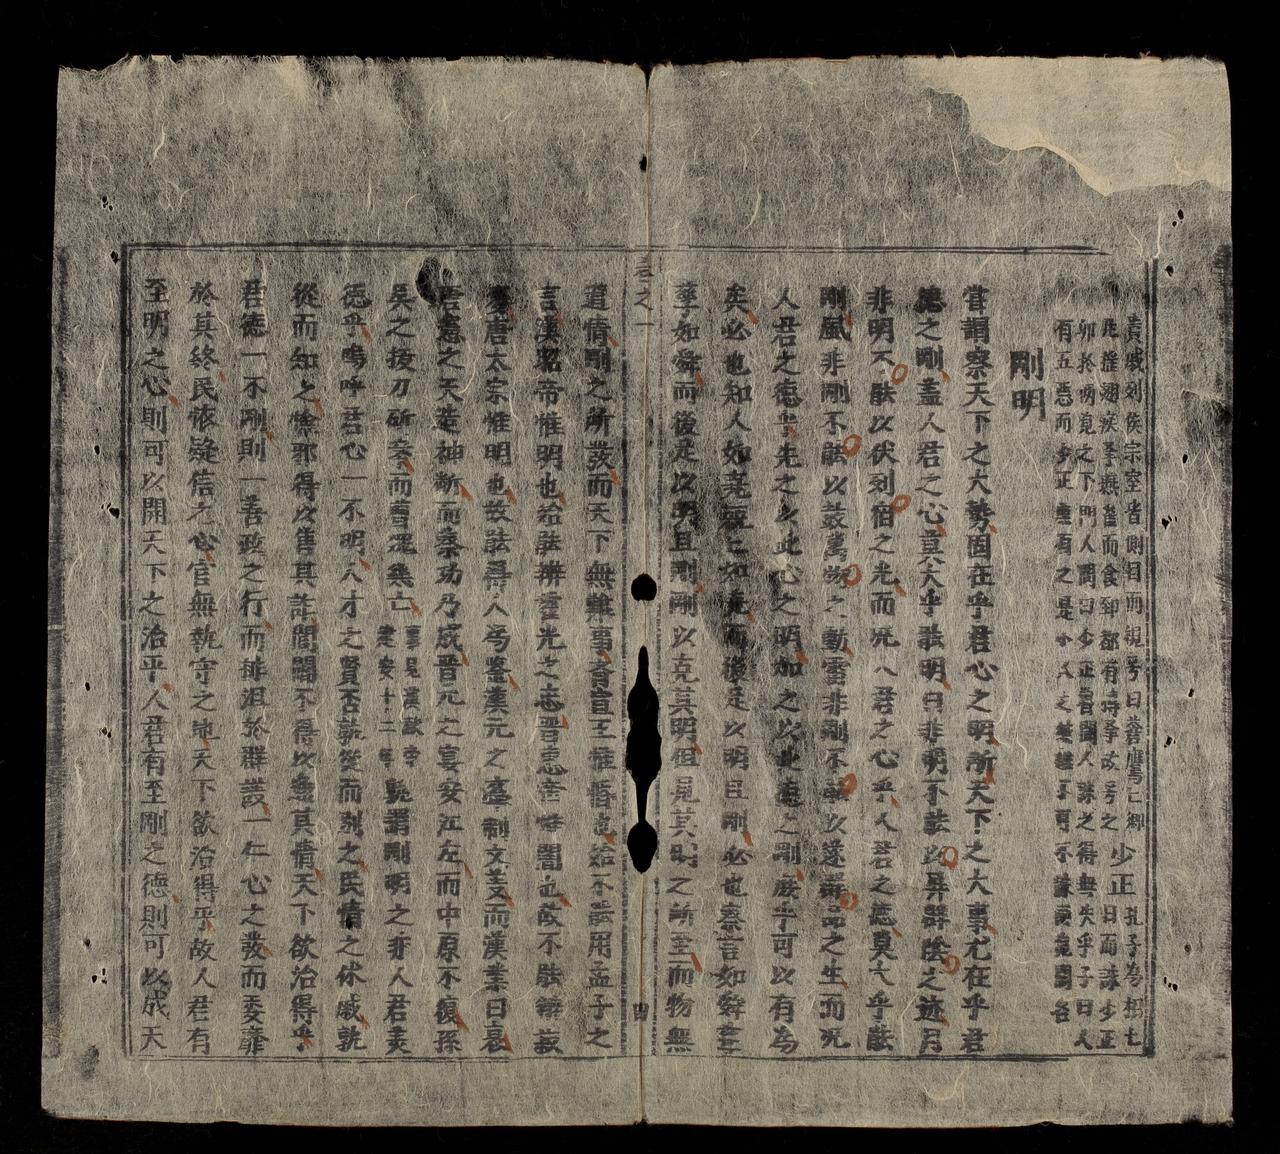 貴戚列侯宗室者則目而視号曰蒼鷹亡郷少正孔子為相七
日而誅少正
卯於兩觀之下門人問曰少正魯聞人誅之得無失乎子曰人
有五惡而少正
剛明
嘗謂察天下之大勢固在乎君心之明斷天下之大事尤在乎君
德之剛盖人君之心莫大乎能明日非明不能以昇群陰之迹月
非明不能以伏列宿之光而况人君之心乎人君之德莫大乎能
剛風非剛不能以鼓萬物之動雷非剛不能以遂群品之生而况
人君之德乎先之以此心之明加之以此德之剛庶乎可以有為
矣必也知人如堯而後足以明且剛必也察言如舜
而後足以明且剛剛以克其明但見其明之所至而物無
遁情剛之所發而天下無難事齊宣王惟惛也始不能用孟子之
言漢昭帝惟明也始能辨霍光之忠晋惠帝惟闇也故不能辨
唐太宗惟明也故能得人為鑒漢元之優制文義而漢業日衰
唐憲之天造神斷而蔡功乃成晋元之宴安江左而中原不復孫
吳之拔刀斫案而曹瞞幾亡
事見漢獻帝
建安十二年
孰謂剛明之非人君美
德乎嗚呼君心一不明人才之賢否孰從而别之民情之休戚孰
從而知之憸邪得以售其詐閭閻不得以盡其情天下欲治得乎
君德一不剛則一善政之行而排沮於群議一仁心之發而委靡
於其終民恢疑信之心官無執守之地天下欲治得乎故人君有
至明之心則可以開天下之治乎人君有至剛之德則可以成天
卷之一
四